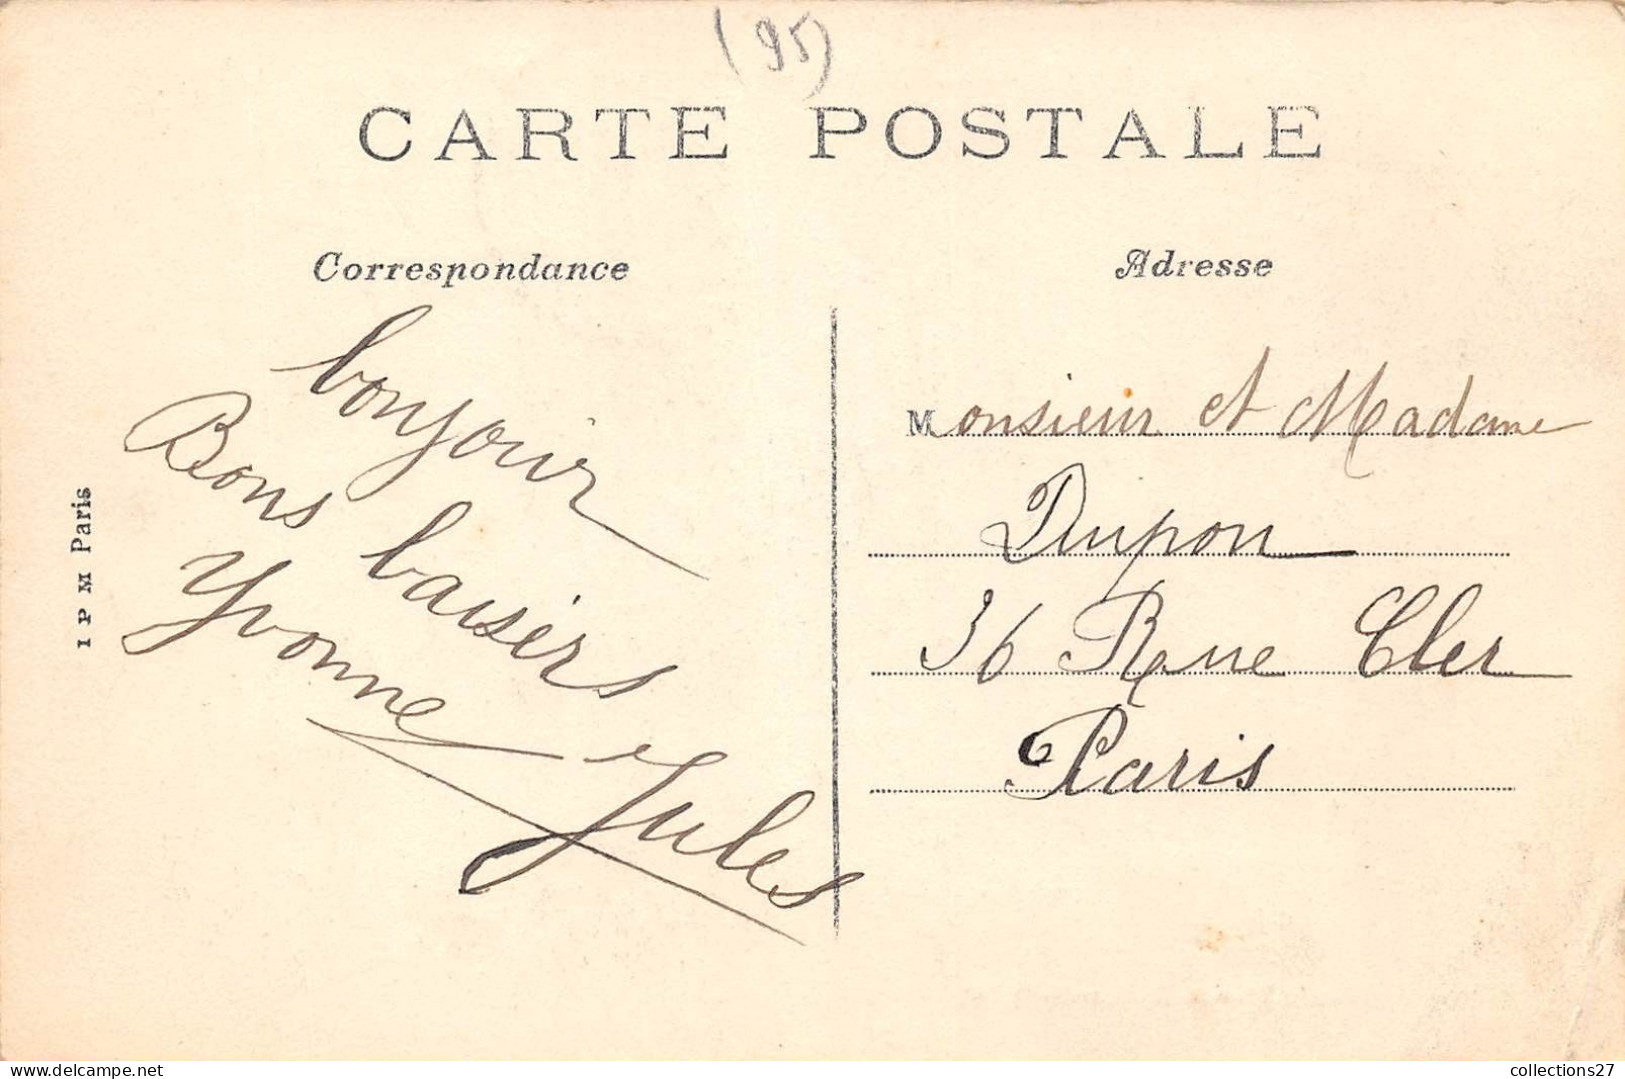 (95)
CARTE POSTALE
Correspondance
Adresse
bonjour
Bons baisers
Yvonne Jules
Monsieur et Madame
Dupon
36 Rue Cler
Paris
I P M Paris
collections27